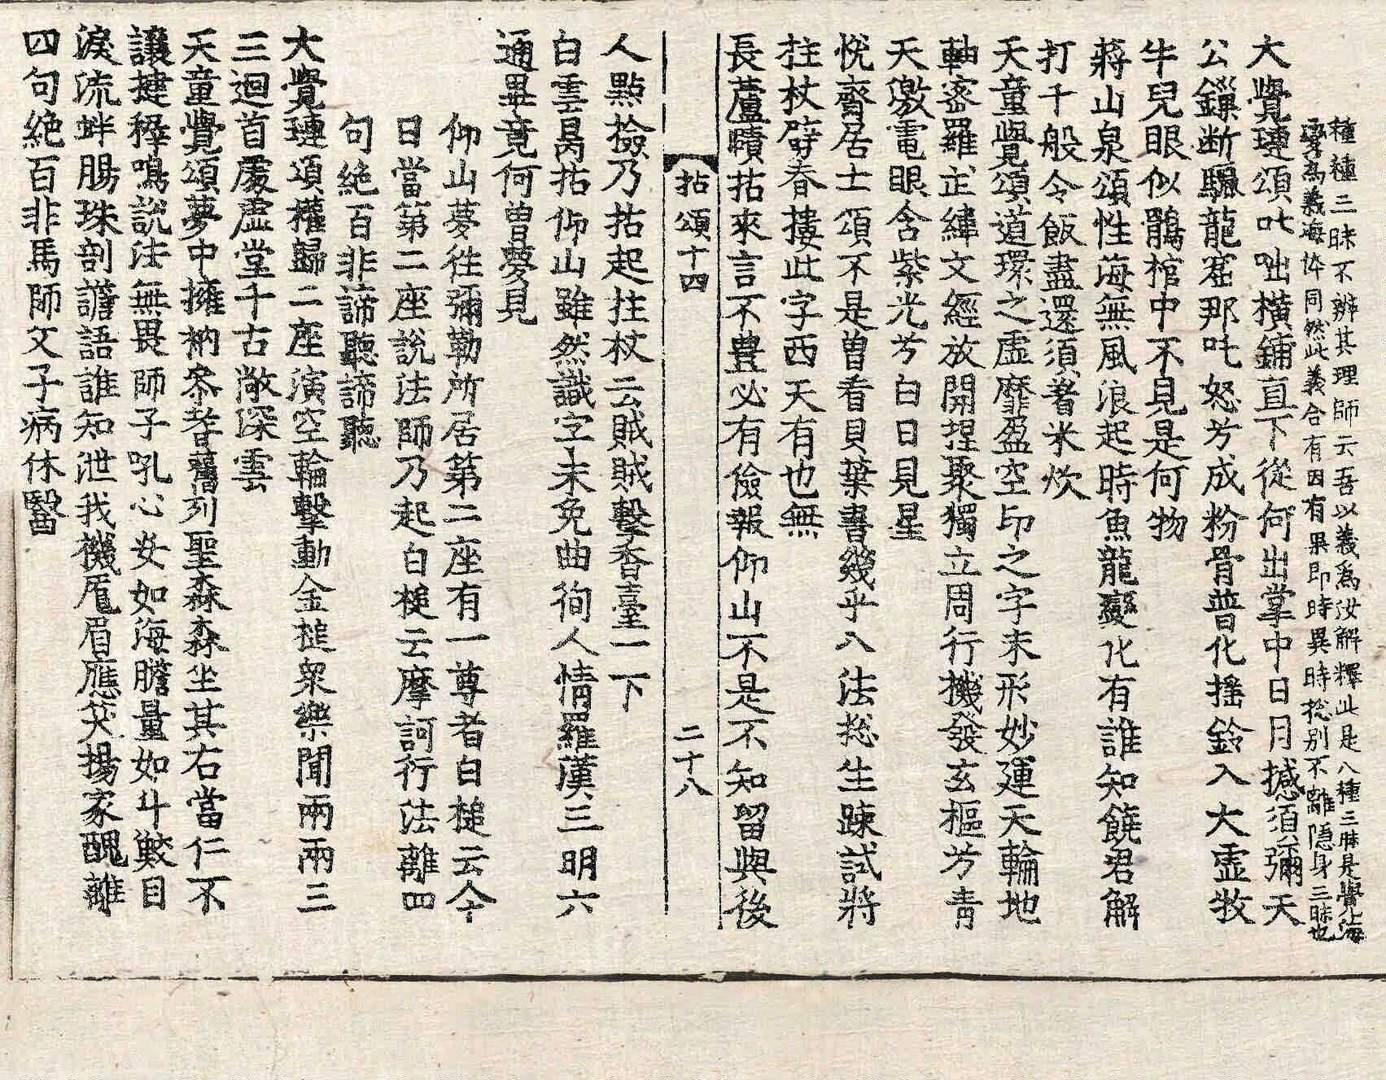 種種三昧不辨其理師云吾以義爲汝解釋此是八種三昧是覺海
變爲義海体同然此義合有因有果即時異時総別不離隱身三昧也
大覺璉頌叱咄橫鋪直下從何出掌中日月撼須彌天
公鑼断驪龍窟那吒怒芳成粉骨普化揺鈴入大虛牧
牛兒眼似鶻棺中不見是何物
蔣山泉頌性海無風浪起時魚龍變化有誰知饒君解
打千般令飯盡還須著米炊
天童覺頌道環之虛靡盈空印之字未形妙運天輪地
軸密羅正緯文經放開揑聚獨立周行機發玄樞芳青
天激電眼含紫光芳白日見星
悅齋居士頌不是曾看貝葉書幾乎八法総生踈試將
拄杖劈春摟此字西天有也無
長蘆賾拈來言不豊必有儉報仰山不是不知留與後
拈頌十四 二十八
人點檢乃拈起拄杖云賊賊擊香臺一下
白雲昺拈仰山雖然識字未免曲徇人情羅漢三明六
通畢竟何曾夢見
仰山夢徃彌勒所居第二座有一尊者白槌云今
日當第二座說法師乃起白槌云摩訶衍法離四
句絶百非諦聽諦聽
大覺璉頌權歸二座演空輪擊動金槌衆樂聞兩兩三
三迴首處虛堂千古敞深雲
天童覺頌夢中擁衲叅耆舊列聖森森坐其右當仁不
讓揵稺鳴說法無畏師子吼心安如海膽量如斗鮫目
淚流蚌腸珠剖譫語誰知泄我機厖眉應笑揚家醜離
四句絶百非馬師父子病休醫